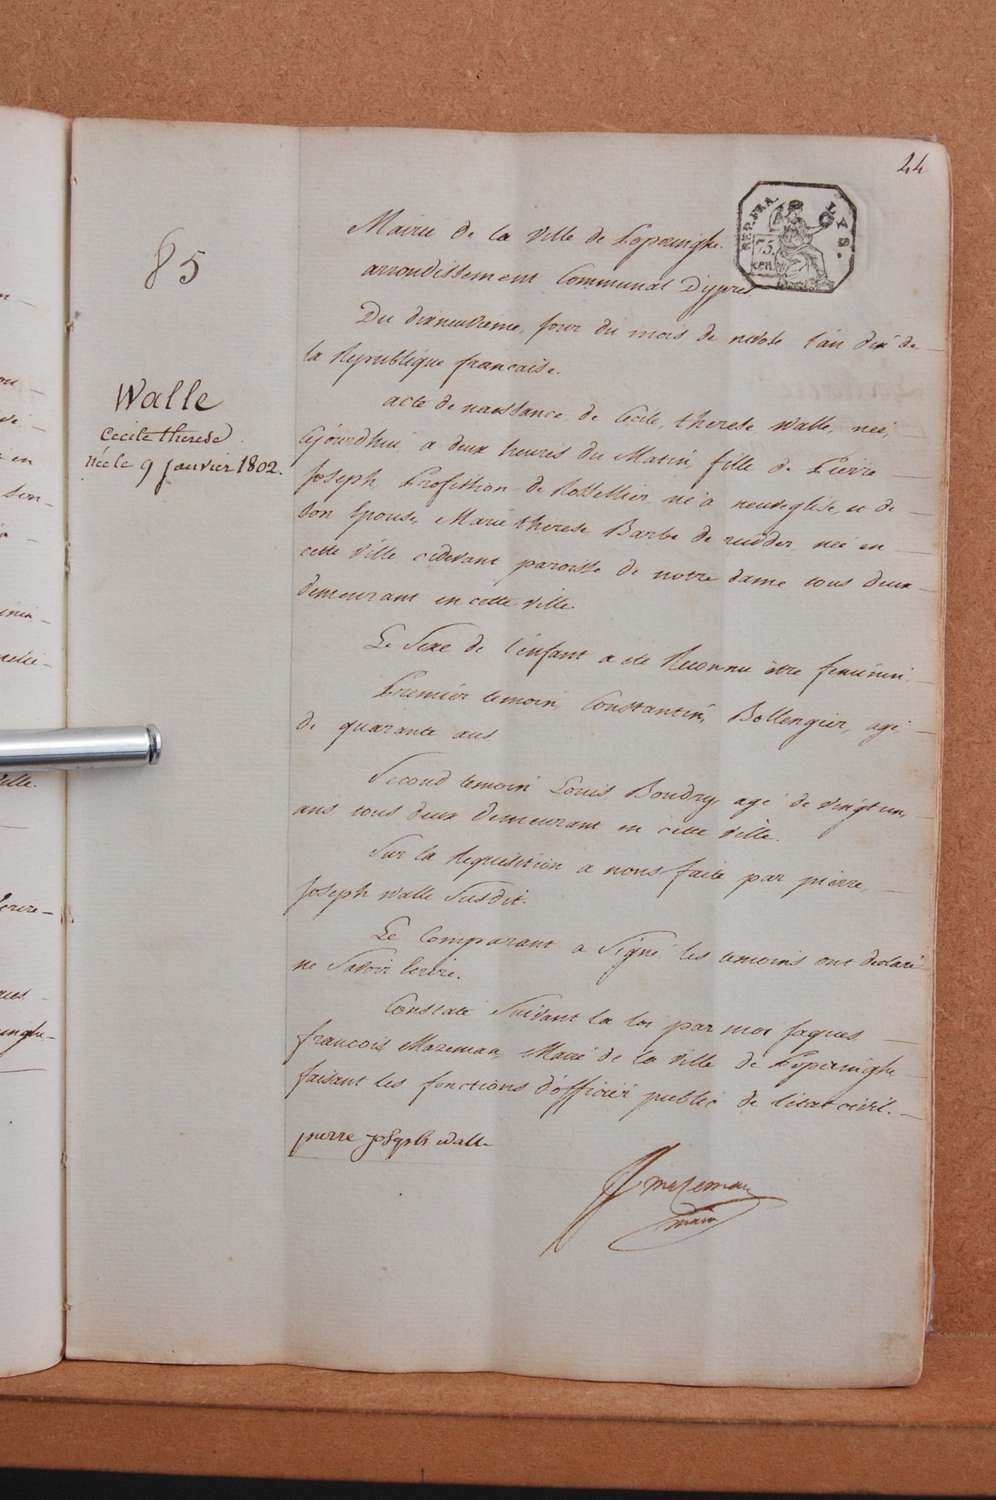 44
REP. FRA.
LYS.
75.
cen.
85
Mairie de la Ville de Poperinghe.
arrondissement Communal Dypres
Du dixneuvieme, jour du mois de nivose l'an dix de
la Republique francaise.
Walle
Cecile therese
Née le 9 janvier 1802.
acte de naissance de Cecile, therese Walle, neé,
Cejourdhui, a deux heures du Matin, fille de Pierre
Joseph Profession de Hottellier né a neuveglise, et de
Son Epouse, Marie therese Barbe de rudder, neé en
cette Ville cidevant paroisse de notre dame tous deux
demeurant en cette ville.
Le Sexe de l'enfant a eté Reconnu etre feminin.
Premier temoin Constantin, Bellengier, agé
de quarante ans
Second temoin Louis Boudry, agé de vingt un,
ans tous deux demeurant en cette Ville.
Sur la Requisition a nous faite par pierre,
Joseph Walle Susdit.
Le Comparant a Signé les temoins ont declaré
ne Savoir Ecrire.
Constaté Suivant la loi par moi Jaques
francois Mazeman, Maire de la Ville de Poperinghe
faisant les fonctions d'officier public de l'etat civil.
pierre joseph walle
Mazeman
maire